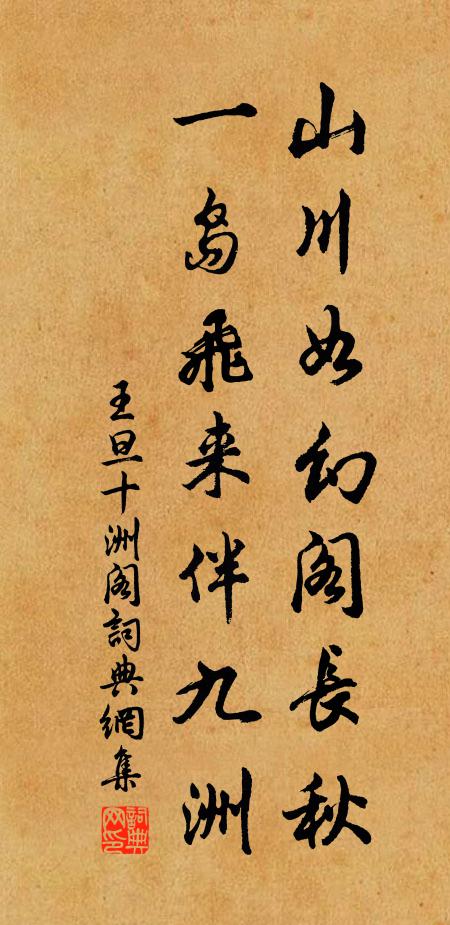 山川如幻阁長秋
一島飛来伴九洲
王旦十洲阁詞典網集
詞典网印